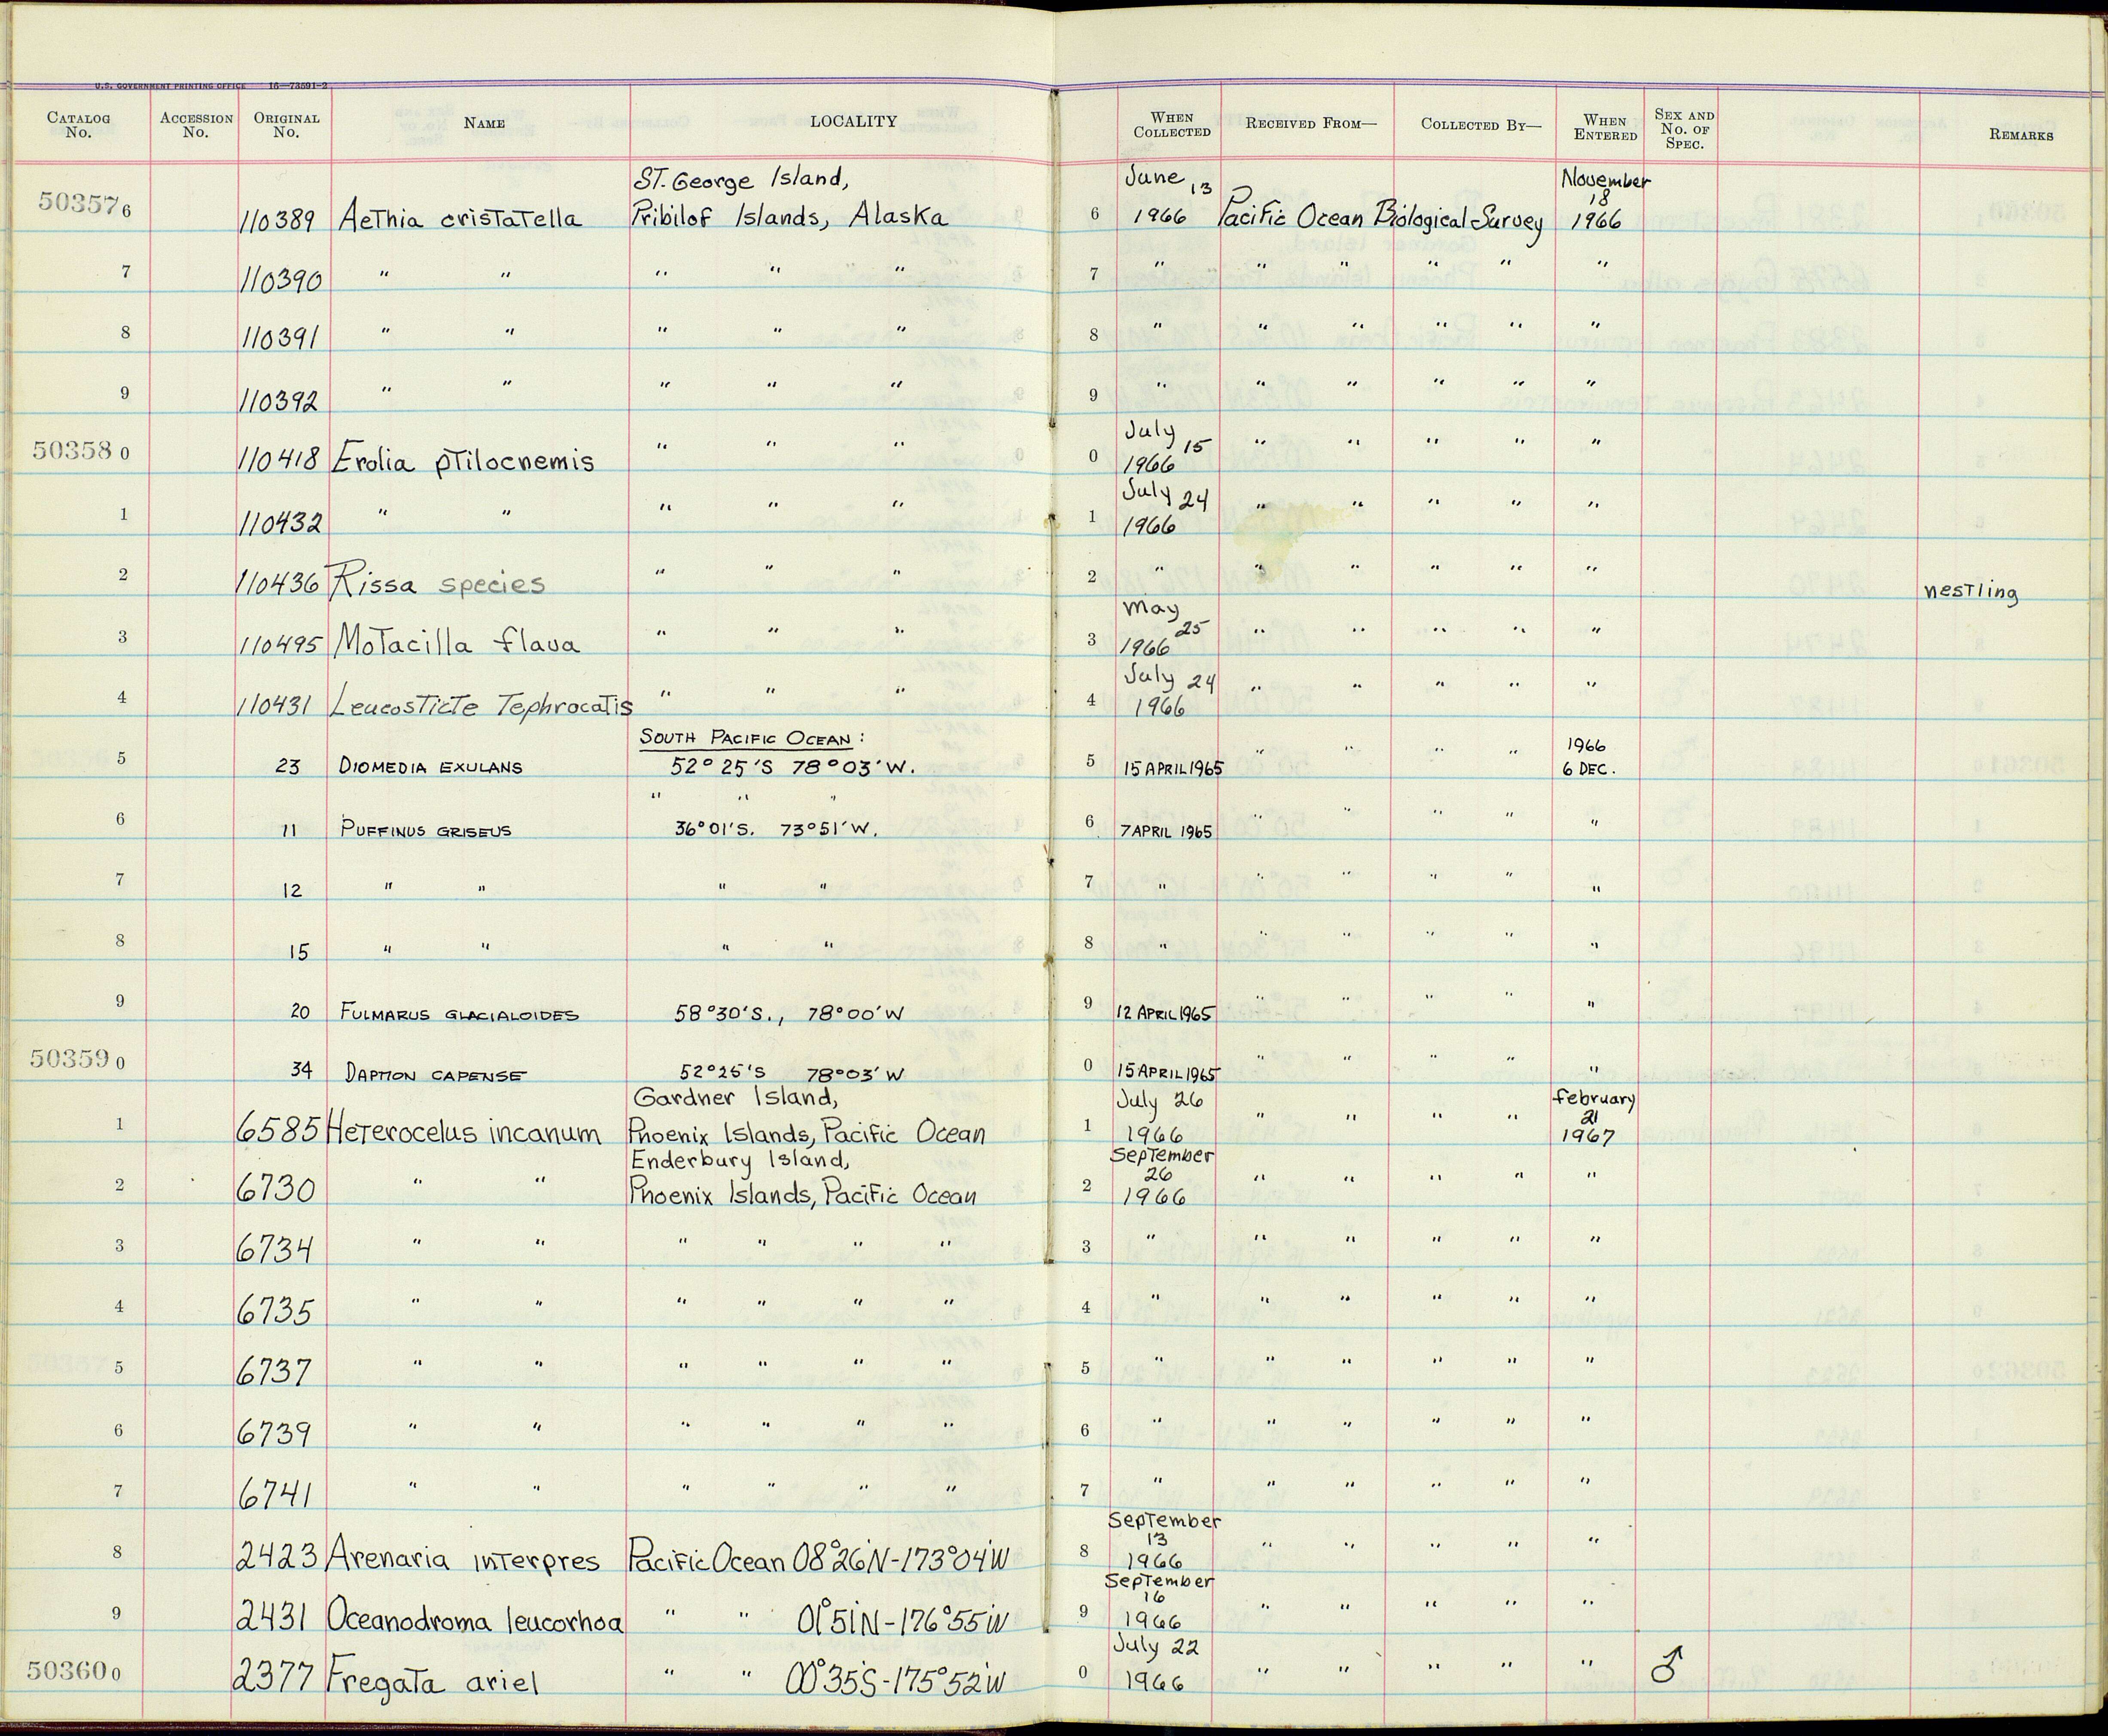 U.S. GOVERNMENT PRINTING OFFICE 16—73591-2
CATALOG No. ACCESSION No. ORIGINAL No. NAME LOCALITY WHEN COLLECTED RECEIVED FROM— COLLECTED BY— WHEN ENTERED SEX AND No. OF SPEC. REMARKS
St. George Island, June 13 November 18
503576 110389 Aethia cristatella Pribilof Islands, Alaska 6 1966 Pacific Ocean Biological Survey 1966
7 110390 " " " " " 7 " " " " " "
8 110391 " " " " " 8 " " " " " "
9 110392 " " " " " 9 " " " " " "
July 15
503580 110418 Erolia ptilocnemis " " " 0 1966 " " " " "
July 24
1 110432 " " " " " 1 1966 " " " " "
2 110436 Rissa species " " " 2 " " " " " " nestling
May 25
3 110495 Motacilla flava " " " 3 1966 " " " " "
July 24
4 110431 Leucosticte Tephrocatis " " " 4 1966 " " " " "
SOUTH PACIFIC OCEAN: 1966
5 23 DIOMEDIA EXULANS 52° 25'S 78°03'W. 5 15 APRIL 1965 " " " " 6 DEC.
" " "
6 11 PUFFINUS GRISEUS 36°01'S. 73°51'W. 6 7 APRIL 1965 " " " " "
7 12 " " " " 7 " " " " " "
8 15 " " " " 8 " " " " " "
9 20 FULMARUS GLACIALOIDES 58°30'S., 78°00'W 9 12 APRIL 1965 " " " " "
503590 34 DAPTION CAPENSE 52°25'S 78°03'W 0 15 APRIL 1965 " " " " "
Gardner Island, July 26 February 21
1 6585 Heterocelus incanum Phoenix Islands, Pacific Ocean 1 1966 " " " " 1967
Enderbury Island, September 26
2 6730 " " Phoenix Islands, Pacific Ocean 2 1966 " " " " "
3 6734 " " " " " " 3 " " " " " "
4 6735 " " " " " " 4 " " " " " "
5 6737 " " " " " " 5 " " " " " "
6 6739 " " " " " " 6 " " " " " "
7 6741 " " " " " " 7 " " " " " "
September 13
8 2423 Arenaria interpres Pacific Ocean 08°26'N-173°04'W 8 1966 " " " " "
September 16
9 2431 Oceanodroma leucorhoa " " 01°51'N-176°55'W 9 1966 " " " " "
July 22
503600 2377 Fregata ariel " " 00°35'S-175°52'W 0 1966 " " " " " ♂